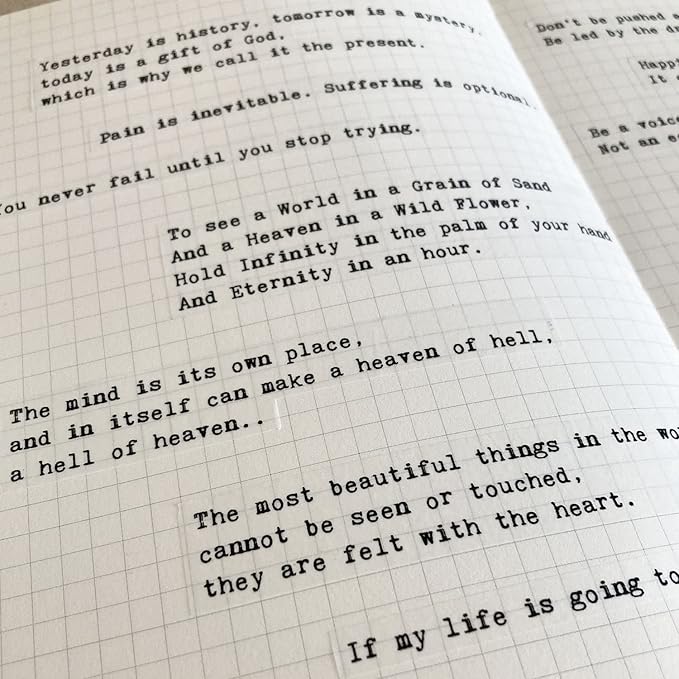 Yesterday is history, tomorrow is a mystery,
today is a gift of God,
which is why we call it the present.
Pain is inevitable. Suffering is optional.
You never fail until you stop trying.
To see a World in a Grain of Sand
And a Heaven in a Wild Flower,
Hold Infinity in the palm of your hand
And Eternity in an hour.
The mind is its own place,
and in itself can make a heaven of hell,
a hell of heaven..
The most beautiful things in the
cannot be seen or touched,
they are felt with the heart.
If my life is going to
Don't be pushed
Be led by the
It
Be a
Not an